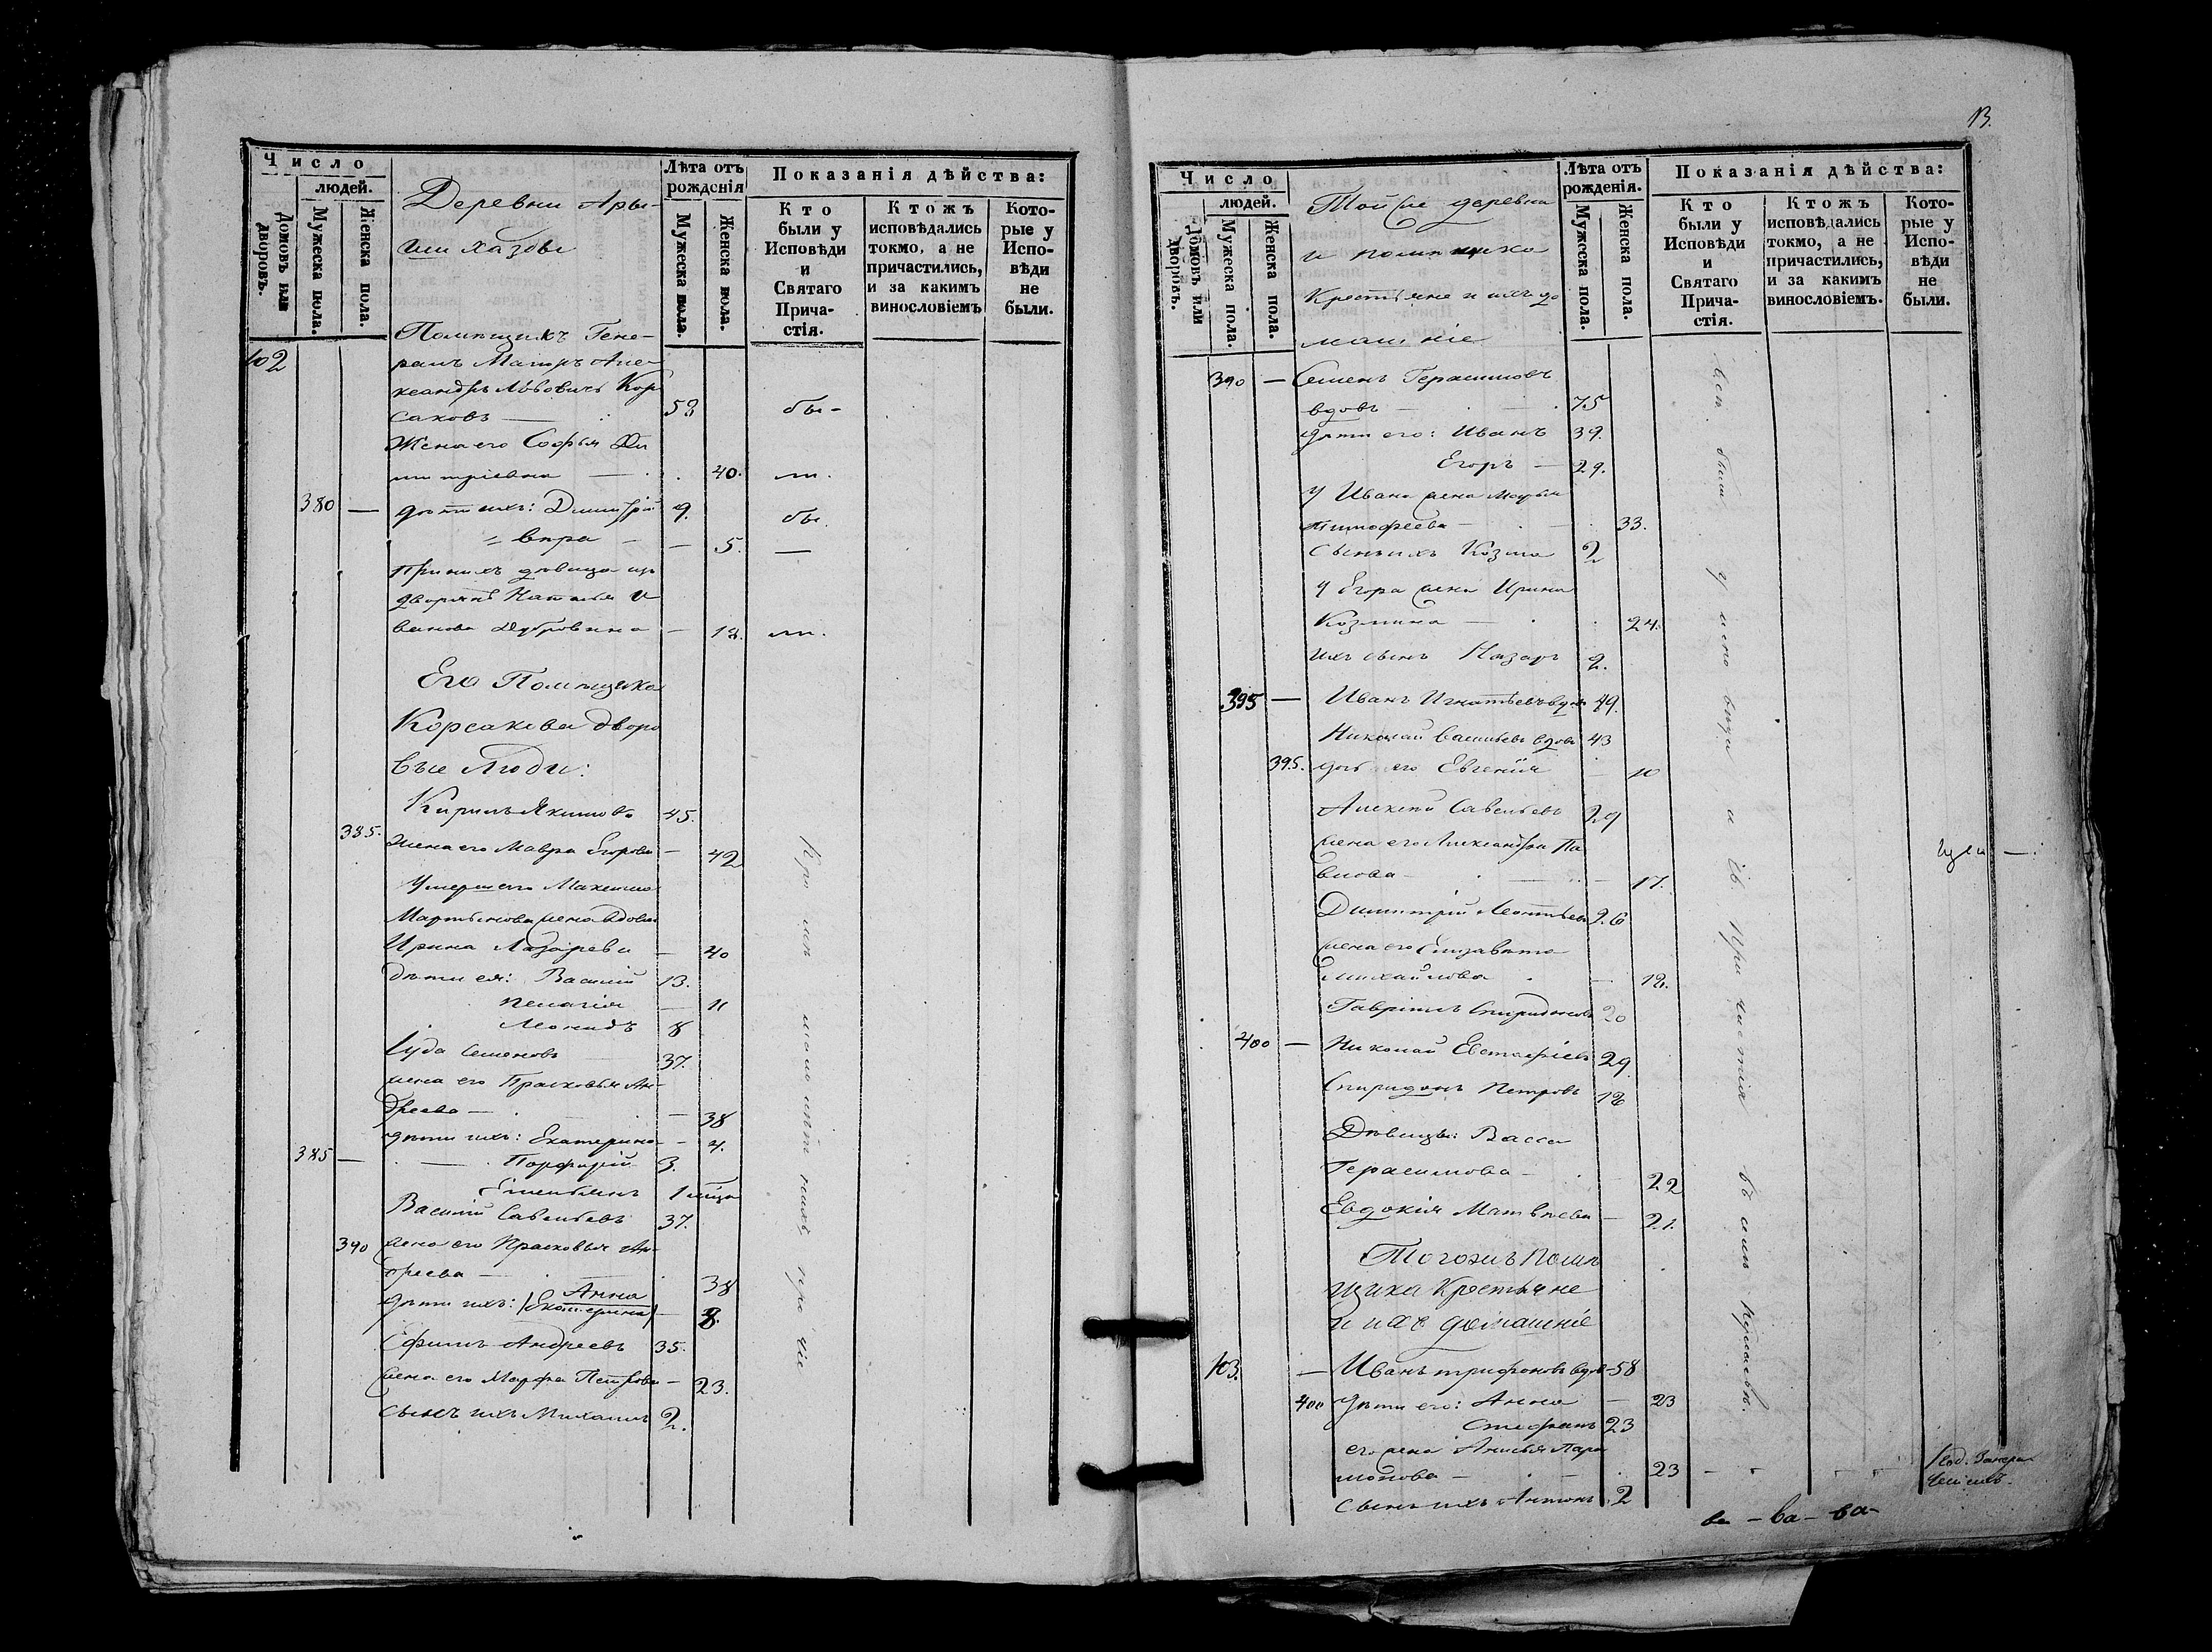 Число
людей.
Домовъ или дворовъ.
Мужеска пола.
Женска пола.
Лѣта отъ рожденія
Мужеска пола.
Женска пола.
Показанія дѣйства:
Кто были у Исповѣди и Святаго Прича-стія.
Ктожъ исповѣдались токмо, а не причастились, и за какимъ винословіемъ
Кото-рые у Испо-вѣди не были.
Деревни Ары-
102
Помѣщикъ Гене-
ралъ Маіоръ Але-
ксандръ Львовичъ Кор
саковъ — 53 бы-
Жена его Софья Ди
митріевна — 40.
380 — дѣти ихъ: Димитрій 9. бы.
Вѣра — 5. —
При нихъ дѣвица изъ
дворянъ Наталья И
ванова Дубровина — 18.
Его Помѣщика
Корсакова дворо
вые Люди:
Кирилъ Якимовъ 45.
385. Жена его Мавра Егорова — 42
Умершего Максима
Мартынова жена вдова
Ирина Лазарева — 40
дѣти ея: Василій 13.
Пелагія — 11
Леонидъ 8
Іуда Семеновъ 37.
жена его Прасковья Ан-
дреева — 38
дѣти ихъ: Екатерина — 4.
385 — Порфирій 3.
Емельянъ 1
Василій Савельевъ 37.
390 жена его Прасковья Ан-
дреева — 38
Анна
дѣти ихъ: (Екатерина) — 8.
Ефимъ Андреевъ 35.
жена его Марфа Петрова — 23.
сынъ ихъ Михаилъ 2.
13.
Число
людей.
Домовъ или дворовъ.
Мужеска пола.
Женска пола.
Лѣта отъ рожденія.
Мужска пола.
Женска пола.
Показанія дѣйства:
Кто были у Исповѣди и Святаго Прича-стія.
Ктожъ исповѣдались токмо, а не причастились, и за какимъ винословіемъ.
Кото-рые у Испо-вѣди не были.
Той же деревни
и помѣщика
Крестьяне и ихъ до
машніе
390 — Семенъ Герасимовъ
вдовъ — 75
дѣти его: Иванъ 39.
Егоръ — 29.
У Ивана жена Марья
Тимофеева — 33.
сынъ ихъ Козма 2
У Егора жена Ирина
Козмина — 24.
Ихъ сынъ Назаръ 2.
395 — Иванъ Игнатьевъ вдовъ 49.
Николай Васильевъ вдовъ 43
395. дочь его Евгенія — 10
Алексѣй Савельевъ 29
жена его Александра Па
влова — 17.
Димитрій Леонтьевъ 26
жена его Елизавета
Михайлова — 18.
Гавріилъ Спиридоновъ 20
400 — Николай Евстафіевъ 29
Спиридонъ Петровъ 18
Дѣвицы: Васса
Герасимова — 22
Евдокія Матвѣева — 21.
Тогожъ помѣ
щика Крестьяне
и ихъ домашніе
103. — Иванъ Трифоновъ вдов- 58
400 дѣти его: Анна — 23
Стефанъ 23
его жена Анисья Пара
монова — 23
сынъ ихъ Антонъ 2
ва - ва - ва-
всѣ были у исповѣди и св. Причастія